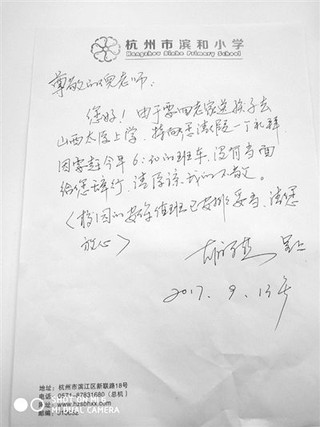 杭州市滨和小学
Hangzhou Binhe Primary School
尊敬的倪老师：
您好！由于要回老家送孩子去
山西太原上学，特向您请假一个礼拜
因要赶今早6:10的班车，没有当面
给您辞行，请原谅我的不敬。
（校园的安保值班已安排妥当，请您
放心）
呈上
2017.9.13早
地址：杭州市滨江区新联路18号
电话：0571-87831680（总机）
http://www.hzsbhxx.com
AI DUAL CAMERA